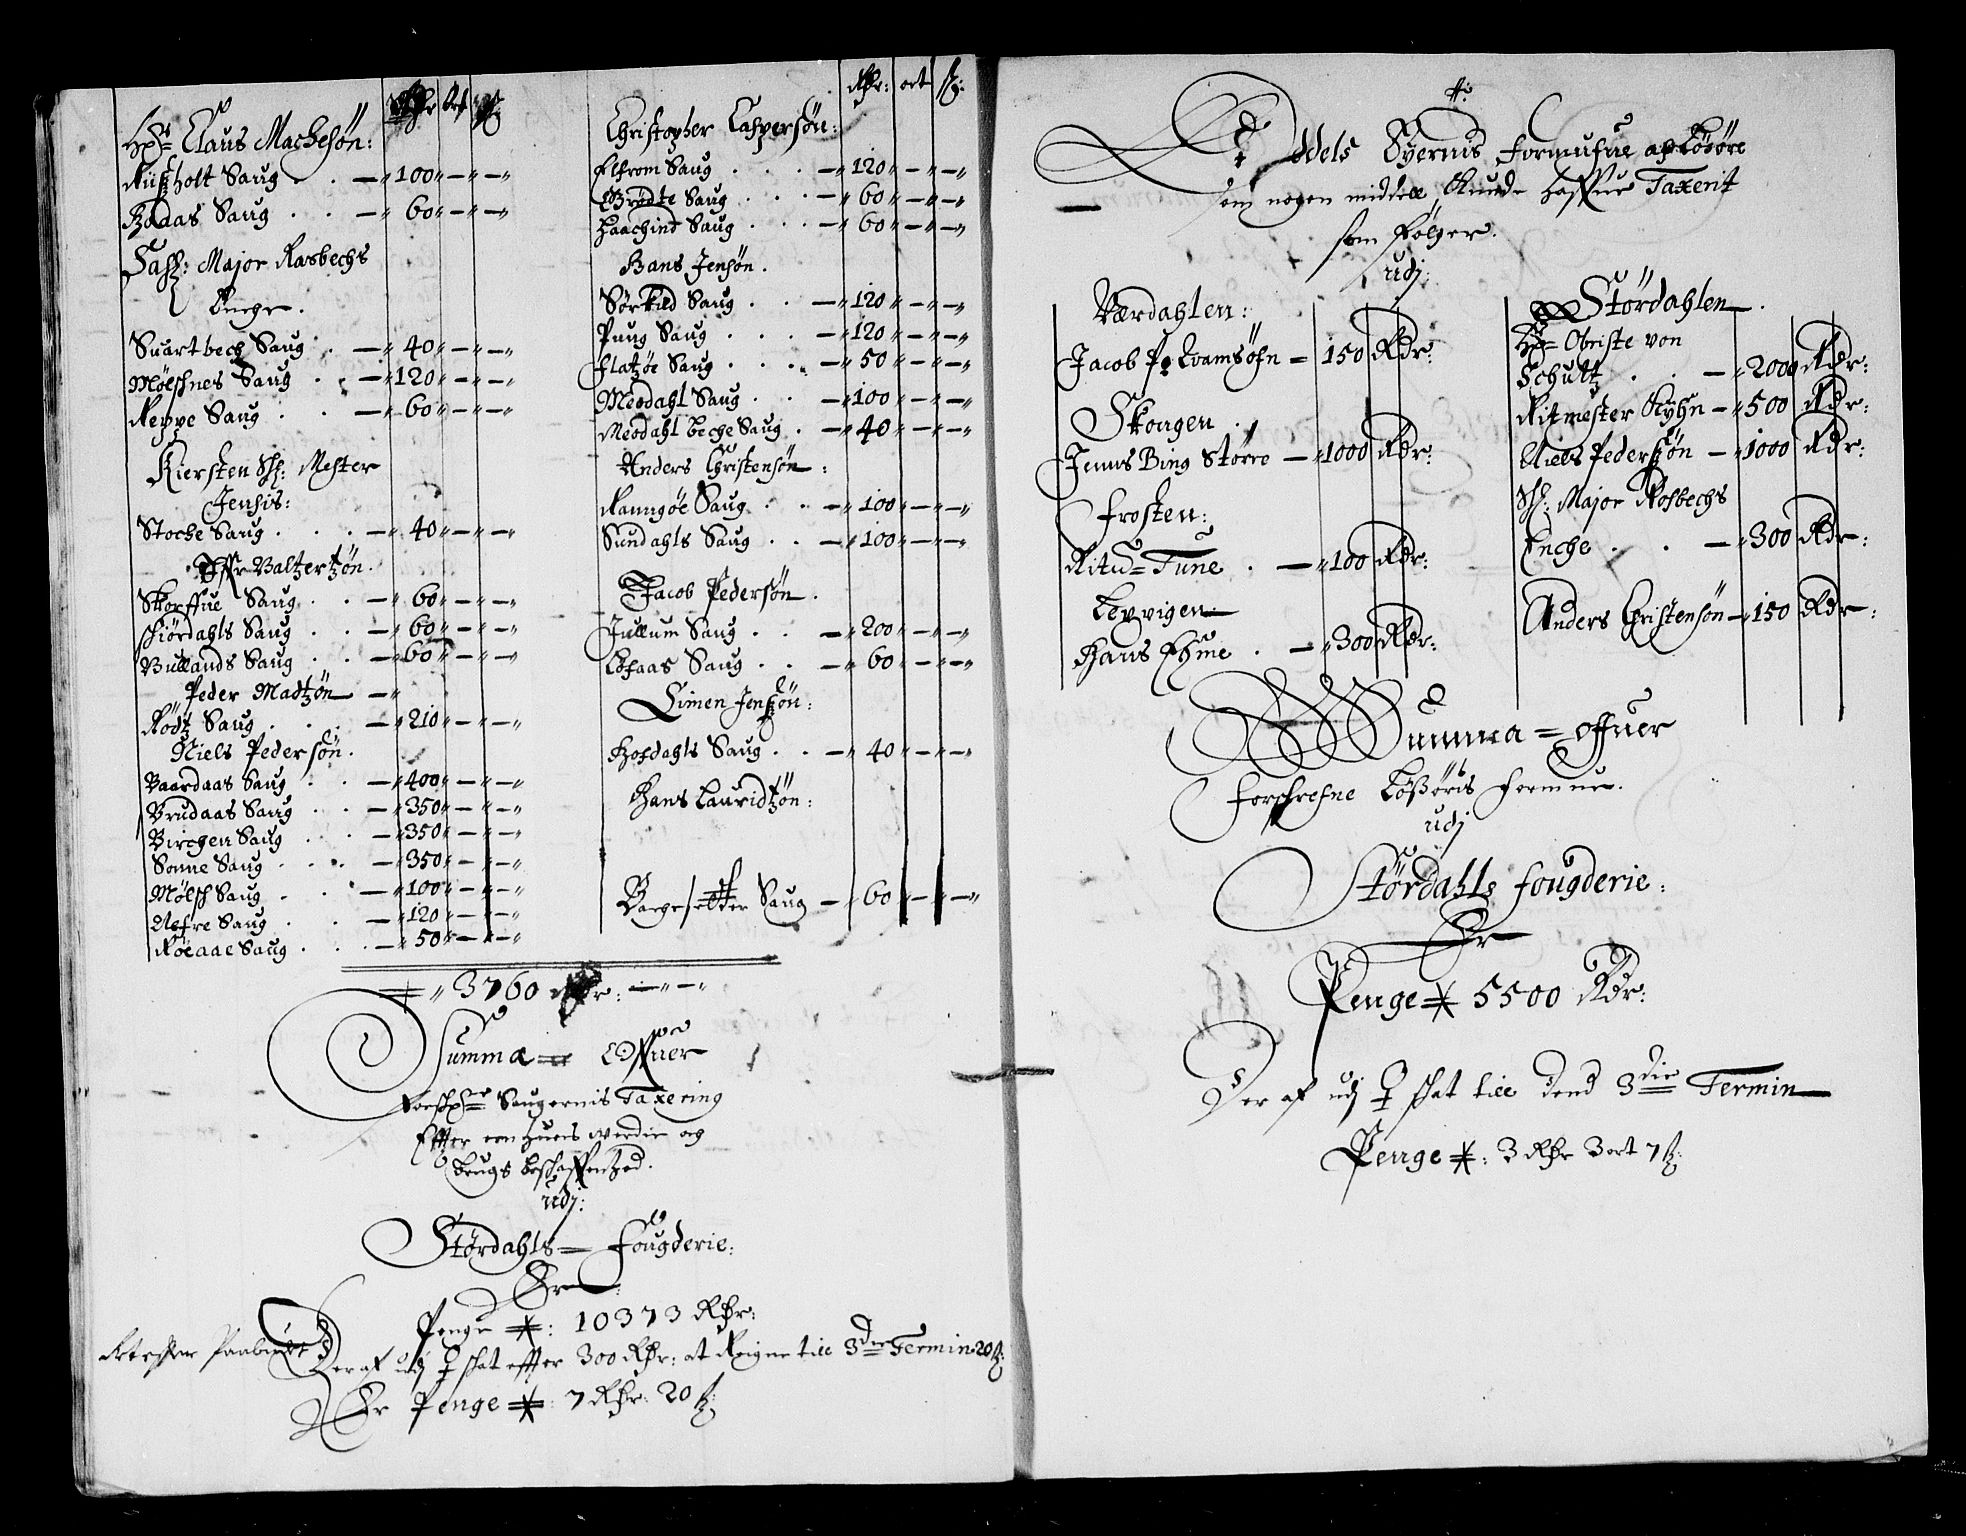 Rdr Ort ß:
Hr: Claus Machesøn:
Riisholt Saug . . — 100 — —
Hadas Saug . . — 60 — —
Sahl: Major Rosbechs
Enche.
Suartbech Saug . — 40 — —
Mølschnes Saug . — 120 — —
Reppe Saug . . — 60 — —
Kiersten Sl: Mester
Jensis:
Stoche Saug . . . — 40 — —
Valtzertzøn.
Skorffue Saug . . — 60 — —
Schiørdahls Saug . . — 60 — —
Bullands Saug . . — 60 — —
Peder Madtzøn —
Rødtz Saug . . . — 210 — —
Niels Pedersøn.
Baardaas Saug . . — 400 — —
Brudaas Saug . . — 350 — —
Birchen Saug . . — 350 — —
Sonne Saug . . . — 350 — —
Mølsch Saug . . — 100 — —
Nefre Saug . . — 120 — —
Røeaae Saug . . . — 50 — —
Rdr: ort ß:
Christopher Caspersøn:
Elfrom Saug . . . — 120 — —
Brødte Saug . . . — 60 — —
Haachind Saug . . . — 60 — —
Hans Jensøn.
Sørkild Saug . . — 120 — —
Pung Saug . . . — 120 — —
Flatzøe Saug . . . — 50 — —
Meodahl Saug . . — 100 — —
Meodahl beche Saug . — 40 — —
Anders Christensøn:
Ranngøe Saug . . — 100 — —
Sundahls Saug . . — 100 — —
Jacob Pedersøn.
Jullum Saug . . — 200 — —
Lofaas Saug . . — 60 — —
Simen Jenszøn:
Hofdahls Saug . . — 40 — —
Hans Lauridtzøn:
Saug — 60 — —
3760 Rdr: — —
Summa offuer
Forschne Saugernis Taxering
Effter som huers werdie och
brugs beschaffenhed.
udj:
Størdahls Fougderie:
Er
Penge 10373 Rdr:
Der af udj schat effter 300 Rdr: at Reigne till 3die Termin 20 ß:
Er Penge 7 Rdr: 20 ß:
Eyernis formufue af Løøre
som nogen middell Kunde haffue Taxerit
som Følger.
udj:
Værdahlen:
Jacob P: Kvamsøfn — 150 Rdr:
Skongen
Jenns Bing Større — 1000 Rdr:
Frosten:
Ritu = Tune . — 100 Rdr:
Lexvigen
Hans Ehme . — 300 Rdr:
Størdahlen.
Hr: Obriste von
Schultz . . — 2000 Rdr:
Ritmester Kyhn — 500 Rdr:
Niels Pederszøn — 1000 Rdr:
Sl: Major Rosbechs
Enche . . — 300 Rdr:
Anders Christensøn — 150 Rdr:
Summa = offuer
forschrefne Løßøris formue.
udj
Størdahls fougderie:
Er
Penge 5500 Rdr:
Der af udj schat till dend 3die Termin
Penge: 3 Rdr 3 ort 7 ß: